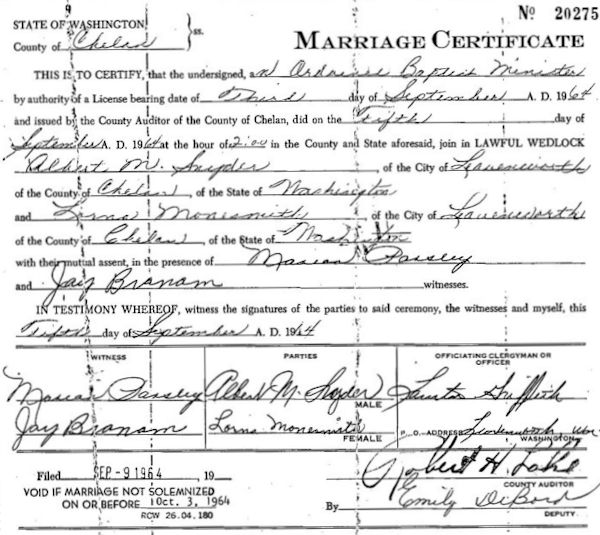 9
STATE OF WASHINGTON
County of Chelan } ss.
No 20275
MARRIAGE CERTIFICATE
THIS IS TO CERTIFY, that the undersigned, an Ordained Baptist Minister
by authority of a License bearing date of Third day of September A. D. 1964
and issued by the County Auditor of the County of Chelan, did on the Fifth day of
September A. D. 1964 at the hour of 2:00 in the County and State aforesaid, join in LAWFUL WEDLOCK
Albert M. Snyder, of the City of Leavenworth
of the County of Chelan, of the State of Washington
and Lorna Monesmith, of the City of Leavenworth
of the County of Chelan, of the State of Washington
with their mutual assent, in the presence of Marian Parsley
and Jay Branam witnesses.
IN TESTIMONY WHEREOF, witness the signatures of the parties to said ceremony, the witnesses and myself, this
Fifth day of September A. D. 1964
WITNESS PARTIES OFFICIATING CLERGYMAN OR OFFICER
Marian Parsley Albert M. Snyder Griffith
MALE
Jay Branam Lorna Monesmith P. O. ADDRESS Leavenworth Wn.
FEMALE WASHINGTON
Filed SEP - 9 1964, 19
Robert H. Lake
COUNTY AUDITOR
VOID IF MARRIAGE NOT SOLEMNIZED
ON OR BEFORE Oct. 3, 1964
By Emily DeBord
DEPUTY.
RCW 26.04.180